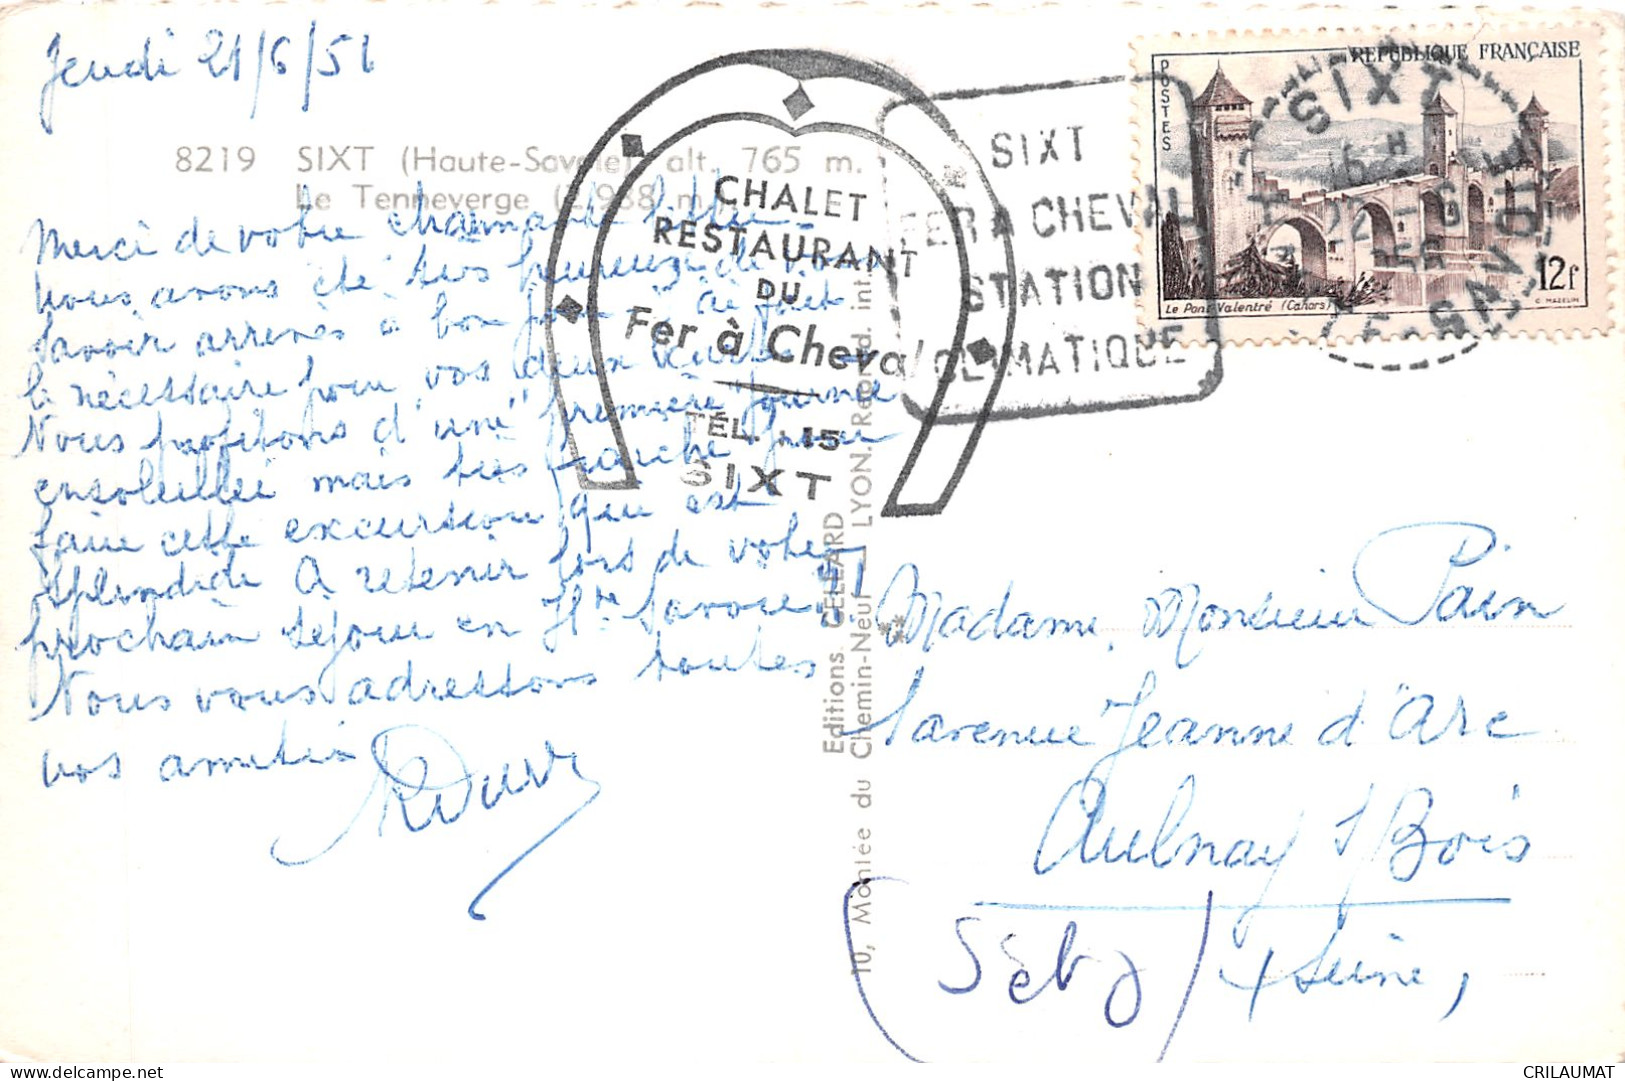 Jeudi 21/6/51
8219 SIXT (Haute-Savoie) alt. 765 m.
Le Tenneverge (2.988 m.)
Merci de votre charmante lettre
Nous avons été très heureux de vous
savoir arrivés à bon port
le nécessaire pour vos deux
Nous profitons d'une première journée
ensoleillée mais très fraiche pour
faire cette excursion qui est
splendide A retenir lors de votre
prochain séjour en Hte Savoie !
Nous vous adressons toutes
vos amitiés
CHALET
RESTAURANT
DU
Fer à Cheval
TÉL. 15
SIXT
SIXT
FER A CHEVAL
STATION
CLIMATIQUE
REPUBLIQUE FRANÇAISE
POSTES
Le Pont Valentré (Cahors)
12f
C. MAZELIN
SIXT
16 H
22 - 6
HTE SAVOIE
Editions CELLARD
10, Montée du Chemin-Neuf LYON. Reprod. int.
Madame, Monsieur Pain
avenue Jeanne d'Arc
Aulnay s/Bois
Seine,
CRILAUMAT